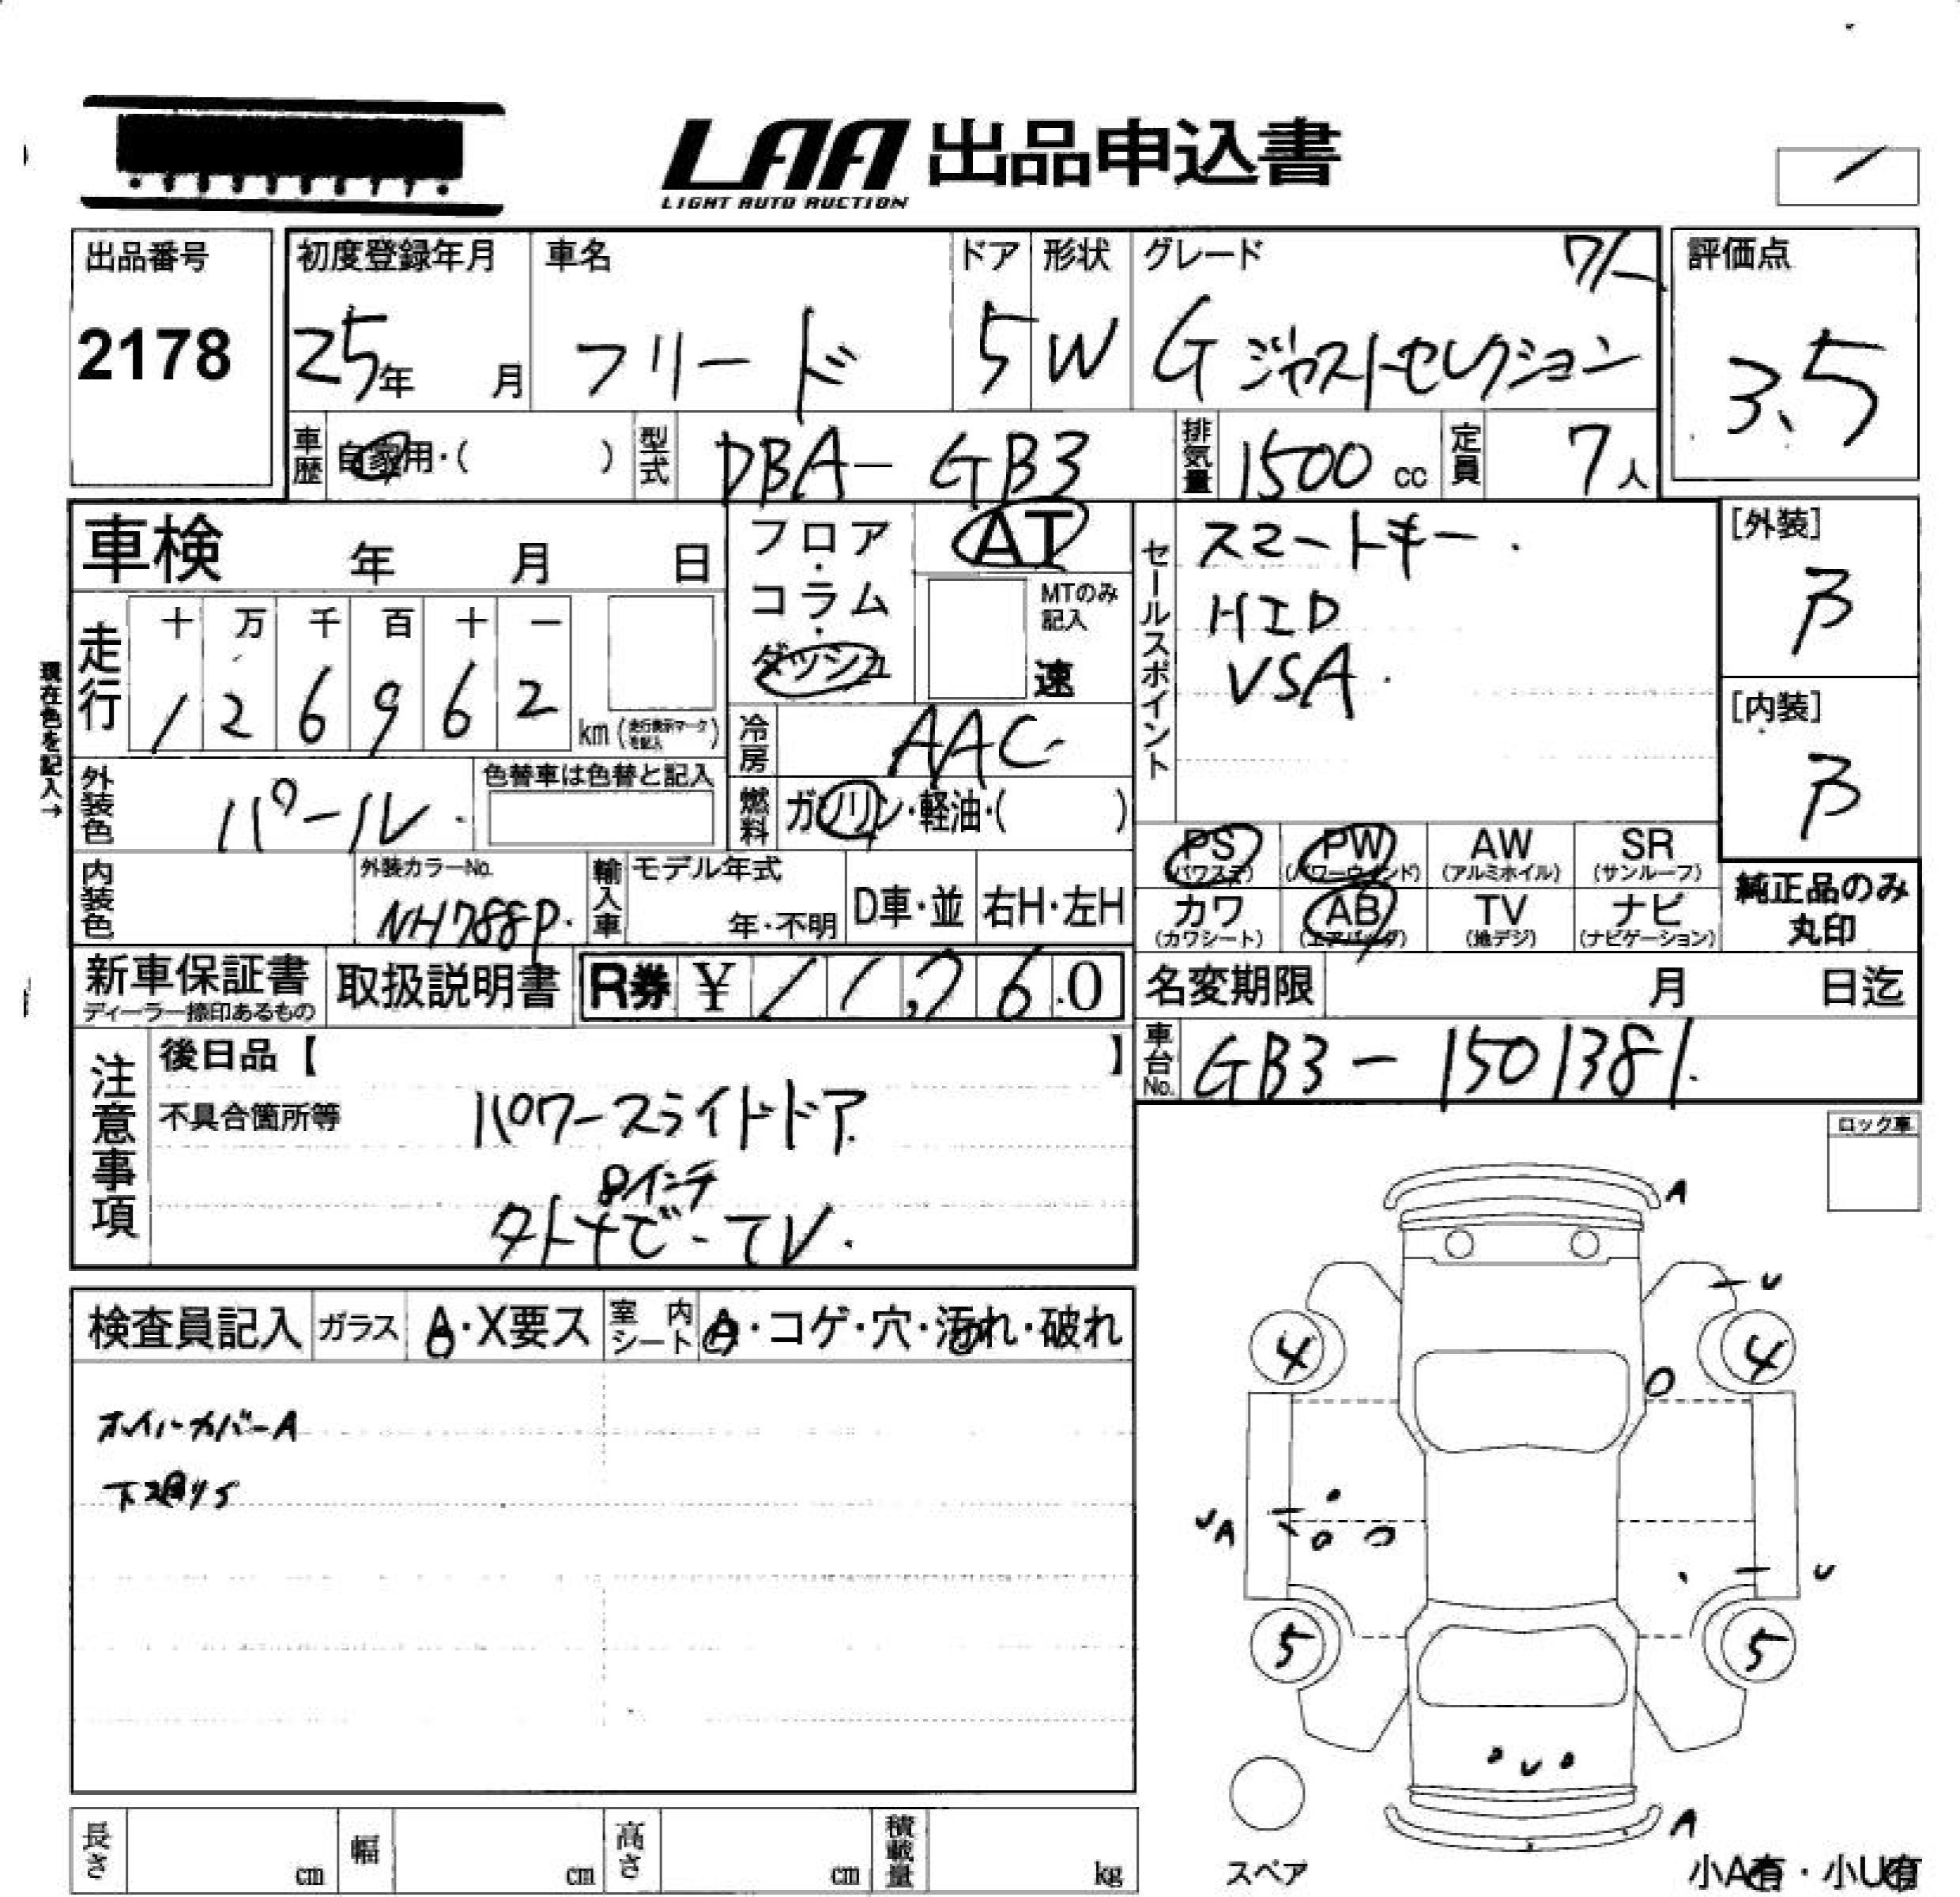 LAA 出品申込書
LIGHT AUTO AUCTION
出品番号
2178
初度登録年月
25年 月
車名
フリード
ドア
5
形状
W
グレード
7人
G ジャストセレクション
評価点
3.5
車歴
自家用・( )
型式
DBA-GB3
排気量
1500 cc
定員
7人
車検 年 月 日
フロア・コラム・ダッシュ
AT
MTのみ記入
速
セールスポイント
スマートキー.
HID
VSA.
[外装]
B
[内装]
B
現在色を記入→
走行
十 万 千 百 十 一
1 2 6 9 6 2 km (走行表示マークを記入)
冷房
AAC
外装色
パール.
色替車は色替と記入
燃料
ガソリン・軽油・( )
PS (パワステ)
PW (パワーウインド)
AW (アルミホイル)
SR (サンルーフ)
カワ (カワシート)
AB (エアバッグ)
TV (地デジ)
ナビ (ナビゲーション)
純正品のみ丸印
内装色
外装カラーNo.
NH788P.
輸入車
モデル年式
年・不明
D車・並
右H・左H
新車保証書
ディーラー捺印あるもの
取扱説明書
R券 ¥ 11,760
名変期限 月 日迄
車台No.
GB3-1501381.
注意事項
後日品【 】
不具合箇所等
パワースライドドア
8インチ
タトナビ-TV.
ロック車
検査員記入
ガラス
A・X要ス
室内シート
A・コゲ・穴・汚れ・破れ
ホイルカバーA
下廻りS
A
U
4 4
UA
U
5 5
U
A
スペア
小A有・小U有
長さ cm
幅 cm
高さ cm
積載量 kg